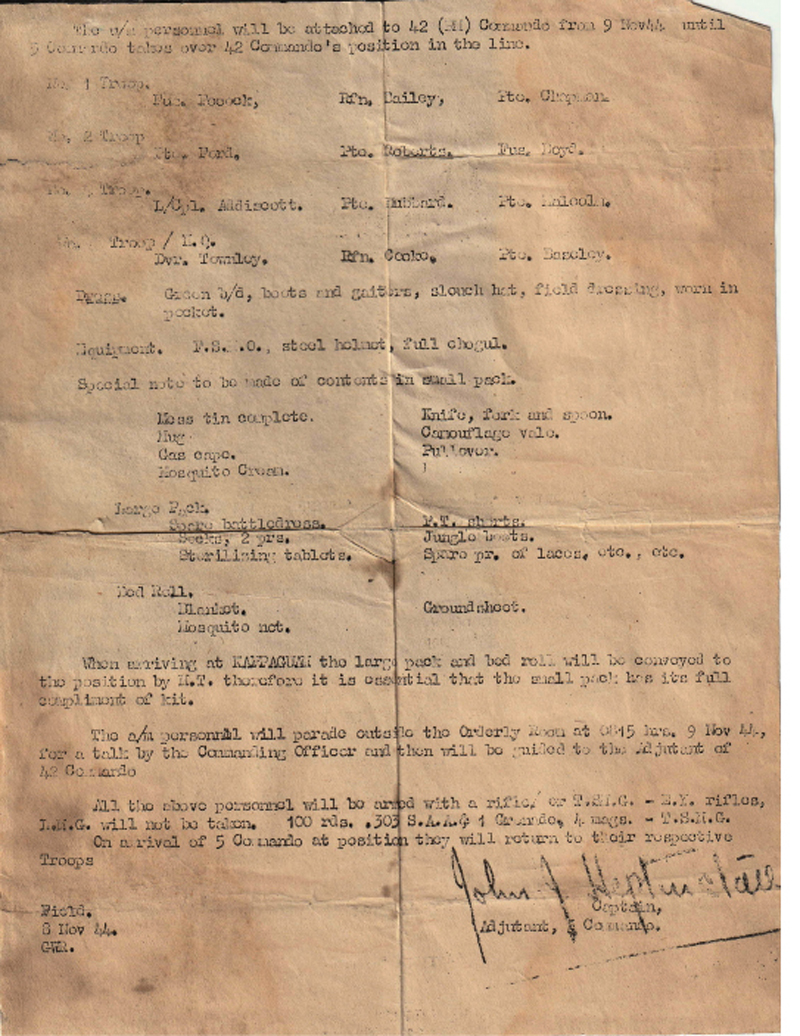 The u/m personnel will be attached to 42 (RM) Commando from 9 Nov44 until
5 Commando takes over 42 Commando's position in the line.
No. 1 Troop.
Fus. Pocock, Rfn. Bailey, Pte. Chapman.
No. 2 Troop
Pte. Ford, Pte. Roberts. Fus. Boyd.
No. Troop.
L/Cpl. Addiscott. Pte. Hubbard. Pte. Malcolm.
Troop / H.Q.
Dvr. Townley. Rfn. Cooke, Pte. Baseley.
Dress. Green b/d, boots and gaiters, slouch hat, field dressing, worn in
pocket.
Equipment. F.S.M.O., steel helmet, full chogul.
Special note to be made of contents in small pack.
Mess tin complete. Knife, fork and spoon.
Mug Camouflage vale.
Gas cape. Pullover.
Mosquito Cream.
Large Pack.
Spare battledress. P.T. shorts.
Socks, 2 prs. Jungle boots.
Sterilizing tablets. Spare pr. of laces, etc., etc.
Bed Roll.
Blanket. Groundsheet.
Mosquito net.
When arriving at the large pack and bed roll will be conveyed to
the position by M.T. therefore it is essential that the small pack has its full
compliment of kit.
The a/m personnel will parade outside the Orderly Room at 0845 hrs. 9 Nov 44,
for a talk by the Commanding Officer and then will be guided to the Adjutant of
42 Commando
All the above personnel will be armed with a rifle, or T.S.M.G. - E.Y. rifles,
L.M.G. will not be taken. 100 rds. .303 S.A.A. & 1 Grenade, 4 mags. - T.S.M.G.
On arrival of 5 Commando at position they will return to their respective
Troops
John J Heptinstall
Captain,
Field. Adjutant, 5 Commando.
8 Nov 44.
GWR.